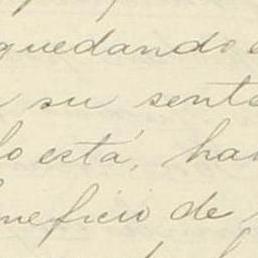 quedando
su sent
lo está, ha
neficio de